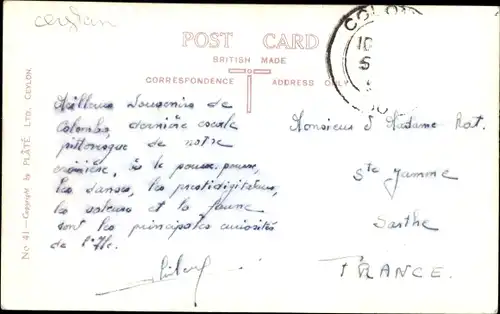 ceylan
POST CARD
BRITISH MADE
CORRESPONDENCE ADDRESS ONLY
COLOM
No 41 — Copyright by PLÂTÉ LTD. CEYLON.
Meilleurs Souvenirs de
Colombo, dernière escale
pittoresque de notre
croisière, où le pousse-pousse,
les danses, les prestidigitateurs,
les et la faune
sont les principales curiosités
de l'Ile.
Monsieur & Madame Rat.
Ste Jamme
Sarthe
FRANCE.